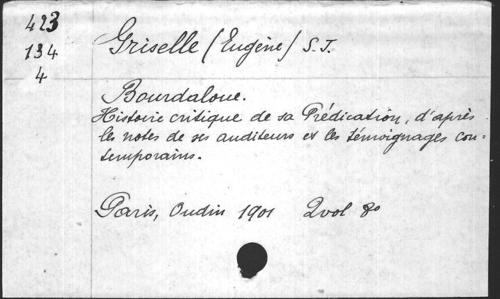 423
134
4
Griselle (Eugène) S.J.
Bourdaloue.
Histoire critique de sa Prédication, d'après
les notes de ses auditeurs et les témoignages con-
temporains.
Paris, Oudin 1901 2vol 8o